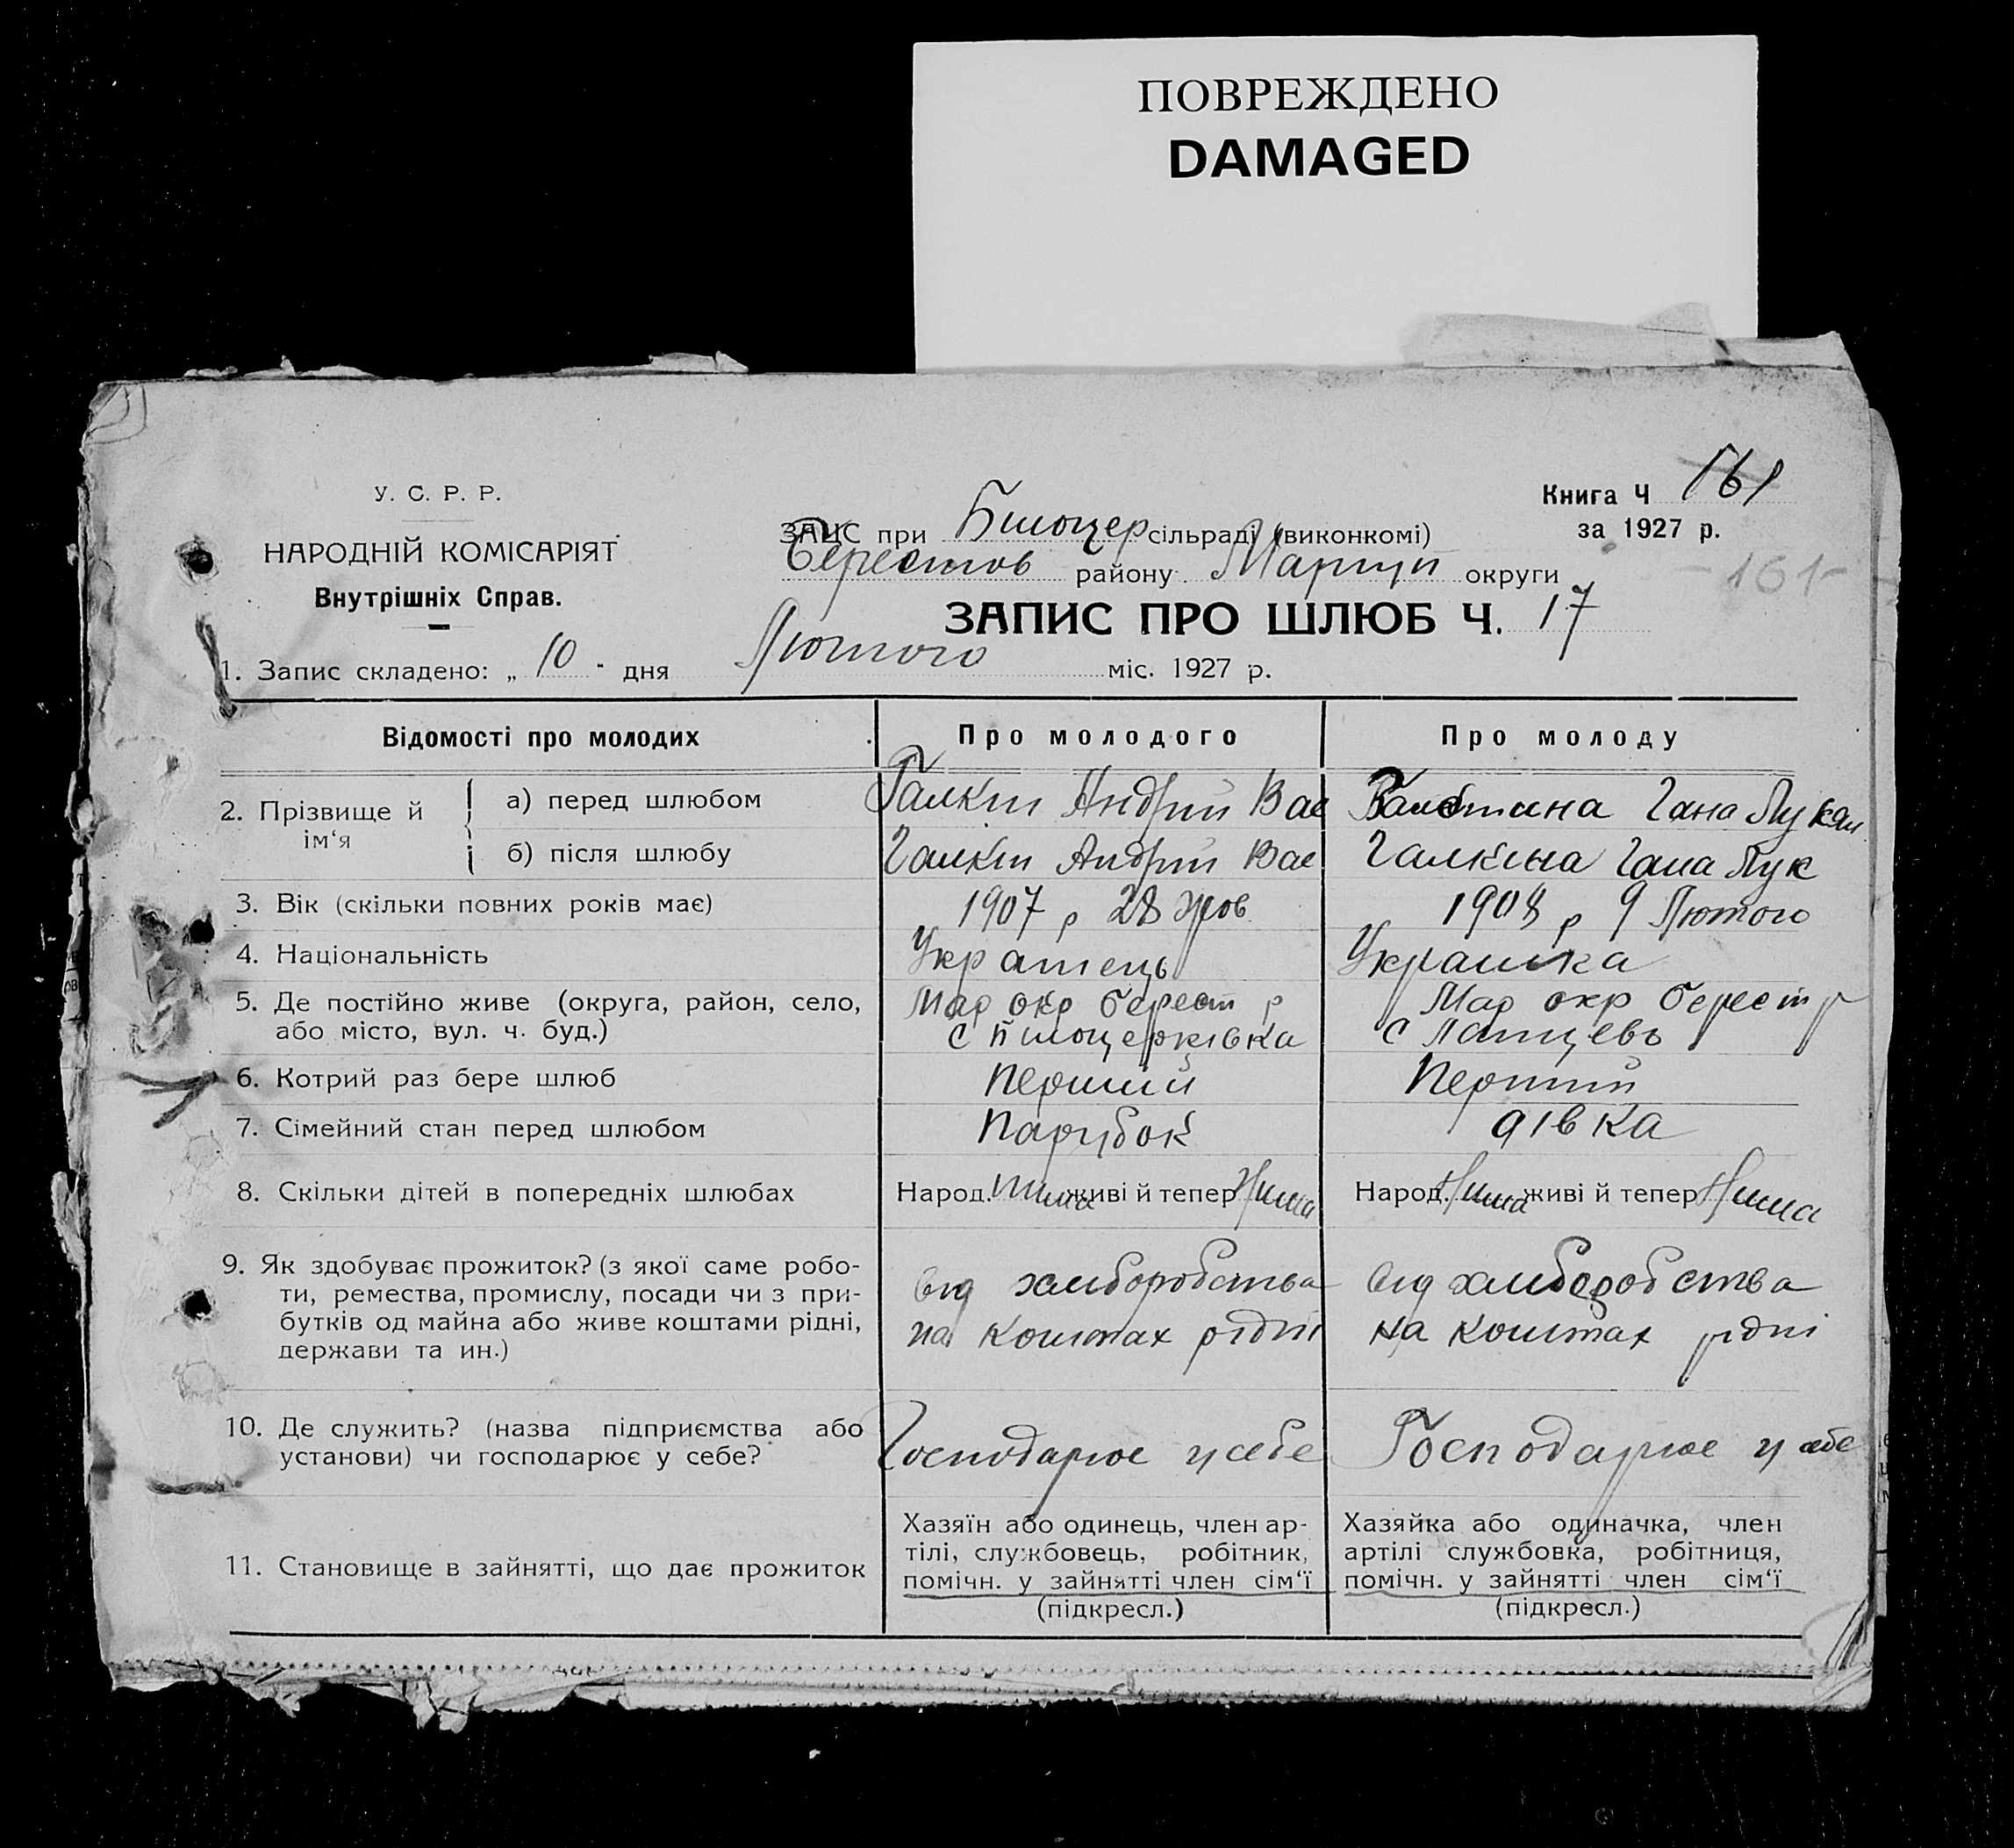 ПОВРЕЖДЕНО
DAMAGED
У. С. Р. Р.
НАРОДНІЙ КОМІСАРІЯТ
Внутрішніх Справ.
Книга Ч 161
за 1927 р.
161
ЗАПИС при Білоцер сільраді (виконкомі)
Берестов району Маріуп округи
ЗАПИС ПРО ШЛЮБ Ч. 17
1. Запис складено: „ 10 " дня Лютого міс. 1927 р.
Відомості про молодих Про молодого Про молоду
2. Прізвище й ім‘я
а) перед шлюбом Галкін Андрій Вас Гана Лукян
б) після шлюбу Галкін Андрій Вас Галкіна Гана Лук
3. Вік (скільки повних років має) 1907 р 28 жов 1908 р 9 Лютого
4. Національність Українець Українка
5. Де постійно живе (округа, район, село, Мар окр берест р Мар окр берест р
або місто, вул. ч. буд.) с Білоцерківка с
6. Котрий раз бере шлюб Перший Перший
7. Сімейний стан перед шлюбом Парубок дівка
8. Скільки дітей в попередніх шлюбах Народ. Нима живі й тепер Нима Народ. Нима живі й тепер Нима
9. Як здобуває прожиток? (з якої саме робо-
ти, ремества, промислу, посади чи з при- від хліборобства від хліборобства
бутків од майна або живе коштами рідні, на коштах рідні на коштах рідні
держави та ин.)
10. Де служить? (назва підприємства або
установи) чи господарює у себе? Господарює у себе Господарює у себе
11. Становище в зайнятті, що дає прожиток
Хазяїн або одинець, член ар-
тілі, службовець, робітник,
помічн. у зайнятті член сім‘ї
(підкресл.)
Хазяйка або одиначка, член
артілі службовка, робітниця,
помічн. у зайнятті член сім‘ї
(підкресл.)